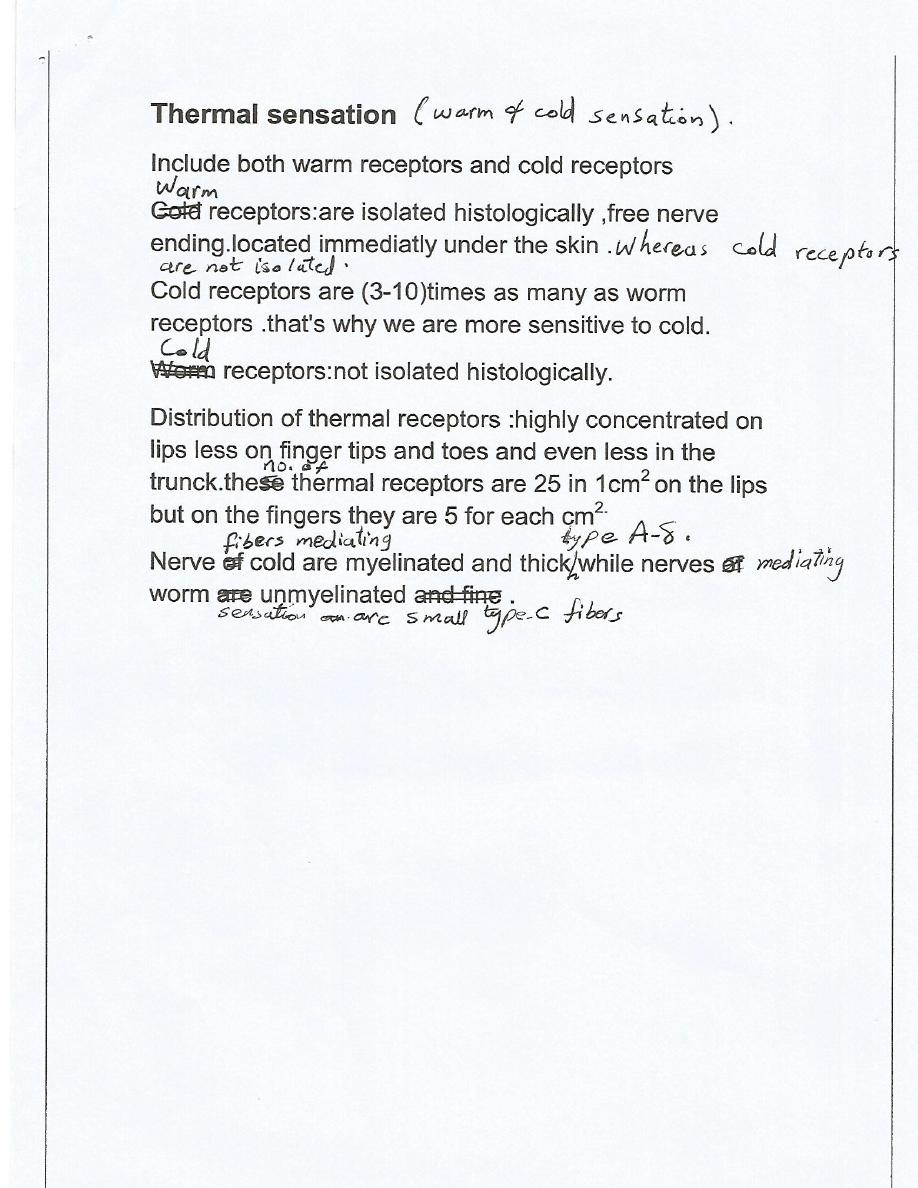 Thermal sensation (warm & cold sensation).
Include both warm receptors and cold receptors
Warm
Cold receptors:are isolated histologically ,free nerve
ending.located immediatly under the skin .Whereas cold receptors
are not isolated.
Cold receptors are (3-10)times as many as worm
receptors .that's why we are more sensitive to cold.
Cold
Worm receptors:not isolated histologically.
Distribution of thermal receptors :highly concentrated on
lips less on finger tips and toes and even less in the
no. of
trunck.these thermal receptors are 25 in 1cm² on the lips
but on the fingers they are 5 for each cm².
fibers mediating type A-δ.
Nerve of cold are myelinated and thick,while nerves of mediating
worm are unmyelinated and fine .
sensation are small type-C fibers